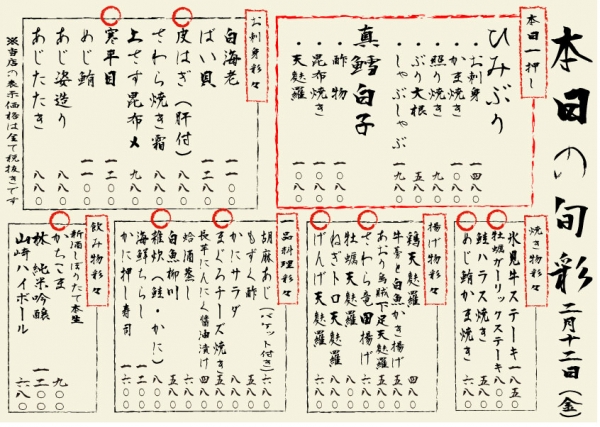 本日の旬彩 二月十二日(金)
本日一押し
ひみぶり
・お刺身 一四八〇
・かま焼き 一〇八〇
・照り焼き 九八〇
・ぶり大根 五八〇
・しゃぶしゃぶ 一九八〇
真鱈白子
・酢物 一〇八〇
・昆布焼き 一〇八〇
・天麩羅 一〇八〇
お刺身彩々
白海老 一一〇〇
ばい貝 一二八〇
皮はぎ(肝付) 一八八〇
さわら焼き霜 八八〇
上さす昆布〆 九八〇
寒平目
めじ鮪 一一〇〇
あじ姿造り 八八〇
あじたたき 八八〇
※当店の表示価格は全て税抜きです
焼き物彩々
氷見牛ステーキ 一八五〇
牡蠣ガーリックステーキ 八八〇
鮭ハラス焼き 五八〇
あじ鮪かま焼き 六八〇
揚げ物彩々
鶏天麩羅 四八〇
牛蒡と白魚かき揚げ
あおり烏賊下足天麩羅 五八〇
さわら竜田揚げ 六八〇
牡蠣天麩羅 八八〇
ねぎトロ天麩羅 八八〇
げんげ天麩羅 六八〇
一品料理彩々
胡麻あじ(バケット付き) 六八〇
もずく酢 五八〇
かにサラダ 八八〇
まぐろチーズ焼き 八八〇
長芋にんにく醤油漬け 四八〇
蛤酒蒸し
白魚柳川 五八〇
雑炊(鮭・かに) 八八〇
海鮮ちらし
かに押し寿司 一六〇〇
飲み物彩々
新酒しぼりたて本生
かちこま 九〇〇
林 純米吟醸 一二〇〇
山崎ハイボール 六八〇